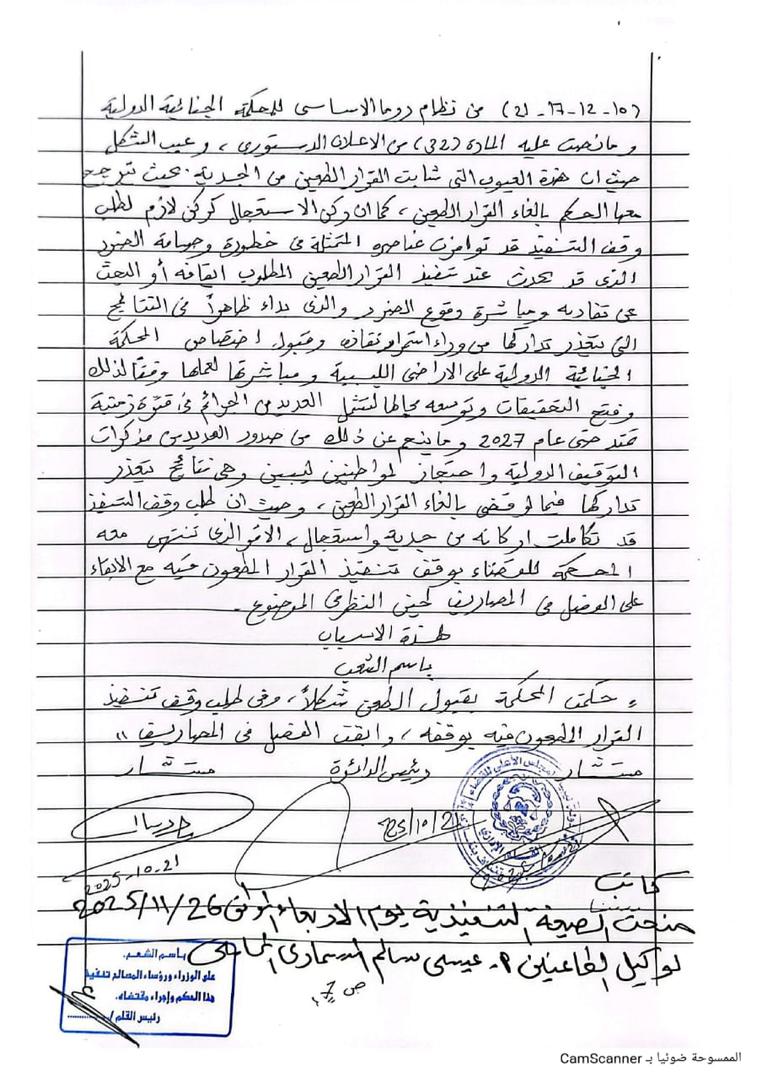 (10-12-17-21) من نظام روما الاساسي للمحكمة الجنائية الدولية
وما نصت عليه المادة (32) من الاعلان الدستوري، وعيب الشكل
حيث ان هذه العيوب التي شابت القرار الطعين من الجدية بحيث ترجح
معها الحكم بالغاء القرار الطعين، كما ان ركن الاستعجال كركن لازم لطلب
وقف التنفيذ قد توافرت عناصره المتمثلة في خطورة وجسامة الضرر
الذي قد يحدث عند تنفيذ القرار الطعين المطلوب ايقافه أو البحث
عن تفاديه ومباشرة وقوع الضرر والذي بداء ظاهراً في النتائج
التي يتعذر تداركها من وراء استمرار نفاذه وقبول اختصاص المحكمة
الجنائية الدولية على الاراضي الليبية ومباشرتها لعملها وفقاً لذلك
وفتح التحقيقات وتوسعه مجالها لتشمل العديد من الجرائم في فترة زمنية
تمتد حتى عام 2027 وما ينجم عن ذلك من صدور العديد من مذكرات
التوقيف الدولية واحتجاز لمواطنين ليبيين وهي نتائج يتعذر
تداركها فيما لو قضي بالغاء القرار الطعين، وحيث ان طلب وقف التنفيذ
قد تكاملت اركانه من جدية واستعجال، الامر الذي تنتهي معه
المحكمة للقضاء بوقف تنفيذ القرار المطعون فيه مع الابقاء
على الفصل في المصاريف لحين النظر في الموضوع.
لهذة الاسباب
باسم الشعب
حكمت المحكمة بقبول الطعن شكلاً، وفي طلب وقف تنفيذ
القرار المطعون فيه بوقفه، وابقت الفصل في المصاريف "
مستشار رئيس الدائرة مستشار
25/10/21
2025-10-21
كاتب
منحت الصيغة التنفيذية يوم الاربعاء الموافق 2025/11/26
لوكيل الطاعنين أ. عيسى سالم السماري المحامي
ص 7
باسم الشعب.
على الوزراء ورؤساء المصالح تنفيذ
هذا الحكم وإجراء مقتضاه.
رئيس القلم / ............
الممسوحة ضوئيا بـ CamScanner